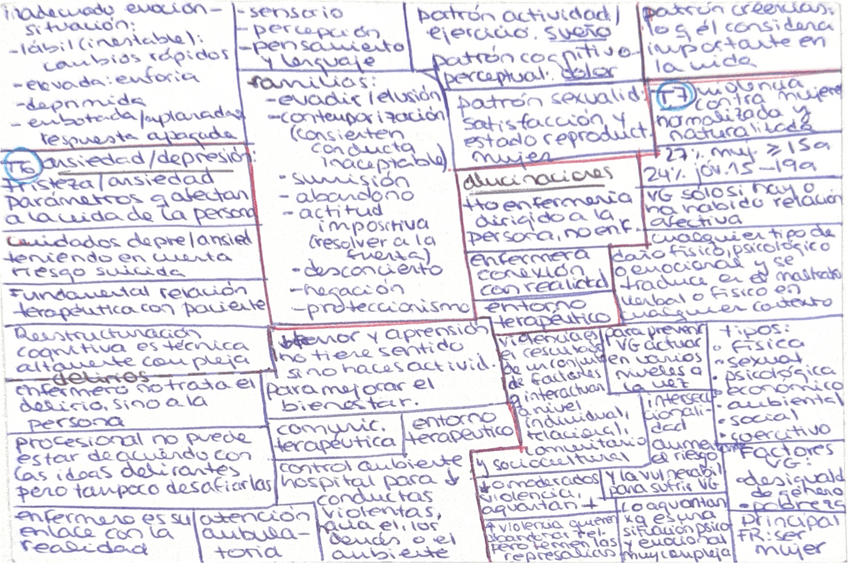 inadecuado emoción-
situación:
-lábil (inestable):
cambios rápidos
-elevada: euforia
-deprimida
-embotada/aplanada:
respuesta apagada
-sensorio
-percepción
-pensamiento
y lenguaje
patrón actividad/
ejercicio. sueño
patrón cognitivo-
perceptual: dolor
patrón creencias:
lo q él considera
importante en
la vida
familias:
-evadir/elusión
-contemporización
(consienten
conducta
inaceptable)
-sumisión
-abandono
-actitud
impositiva
(resolver a la
fuerza)
-desconcierto
-negación
-proteccionismo
patrón sexualid:
satisfacción y
estado reproduct.
mujer
T7 violencia
contra mujeres
normalizada y
naturalizada
27% muj ≥15a
24% jóv. 15-19a
VG sólo si hay o
ha habido relación
afectiva
cualquier tipo de
daño físico, psicológico
o emocional y se
traduce en el maltrato
verbal o físico en
cualquier contexto
T6 ansiedad/depresión:
tristeza/ansiedad
parámetros q afectan
a la vida de la persona
cuidados depre/ansied
teniendo en cuenta
riesgo suicida
Fundamental relación
terapéutica con paciente
Reestructuración
cognitiva es técnica
altamente compleja
alucinaciones
tto enfermería
dirigido a la
persona, no enf.
enfermera
conexión
con realidad
entorno
terapéutico
delirios
enfermero no trata el
delirio, sino a la
persona
profesional no puede
estar de acuerdo con
las ideas delirantes
pero tampoco desafiarlas
enfermero es su
enlace con la
realidad
atención
ambula-
toria
y aprensión
no tiene sentido
si no haces activid.
para mejorar el
bienestar.
comunic.
terapéutica
entorno
terapéutico
control ambiente
hospital para ↓
conductas
violentas,
hacia él, los
demás o el
ambiente
violencia es
el resultado
de un conjunto
de factores
q interactúan
a nivel
individual,
relacional,
comunitario
y sociocultural
para prevenir
VG actuar
en varios
niveles a
la vez
intersec-
cionali-
dad
aumenta
el riesgo
y la vulnerabil
para sufrir VG
tipos:
• física
• sexual
• psicológica
• económico
• ambiental
• social
• coercitivo
Factores
VG:
-desiguald
de género
• pobreza
principal
FR: ser
mujer
moderados
violencia,
aguantan +
+ violencia quieren
abandonar rel.
pero temen las
represalias
lo aguantan
xq es una
situación psico
y emocional
muy compleja